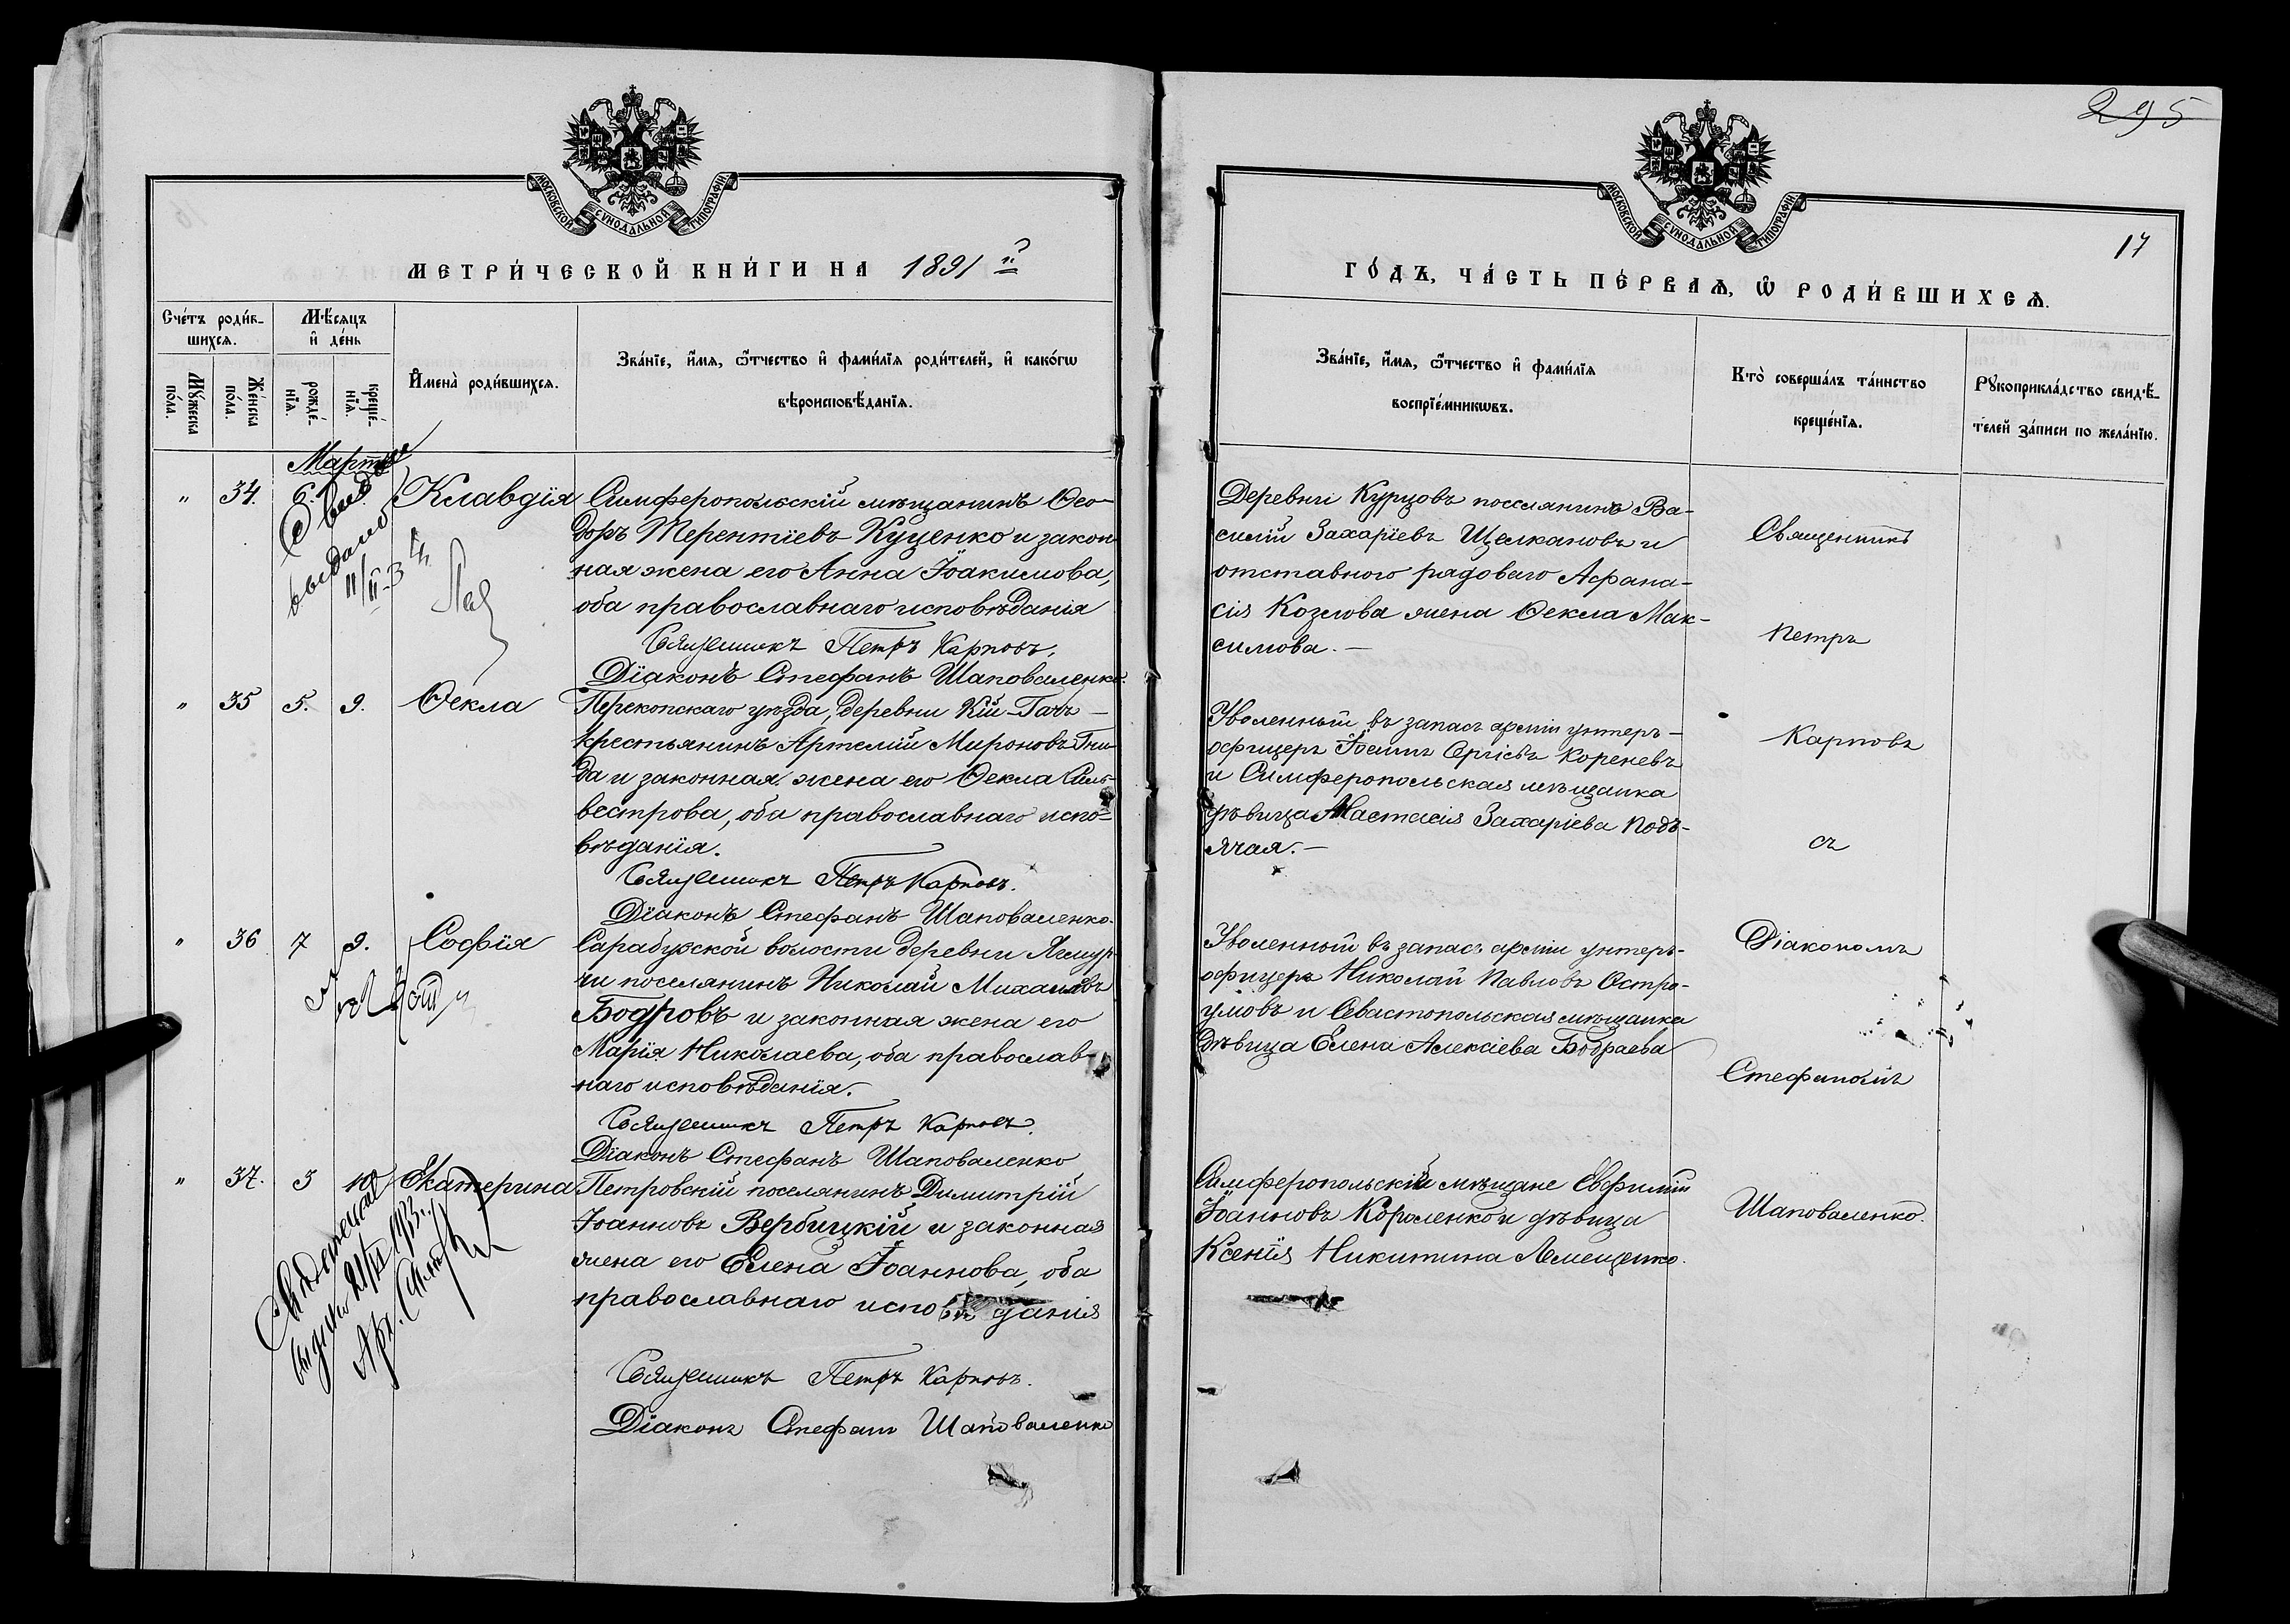 295
МОСКОВСКОЙ СУНОДАЛЬНОЙ ТИПОГРАФІИ
МЕТРИ́ЧЕСКОЙ КНИ́ГИ НА 1891 й
Сче́тъ роди́в-
шихсѧ.
Мѣ́сѧцъ
и҆ де́нь
И҆мена̀ роди́вшихсѧ.
Зва́нїе, и҆́мѧ, ѻ҆́тчество и҆ фами́лїѧ роди́телей, и҆ како́гѡ
вѣроисповѣ́данїѧ.
Мꙋ́жеска
по́ла.
Же́нска
по́ла.
рожде́-
нїѧ.
креще́-
нїѧ.
Мартъ
" 34. 6. Клавдія
Симферопольскій мѣщанинъ Ѳео-
доръ Терентіевъ Куценко и закон-
ная жена его Анна Іоакимова,
оба православнаго исповѣданія
Священникъ Петръ Карповъ.
Діаконъ Стефанъ Шаповаленко.
выдано
11/II-3
" 35 5. 9. Ѳекла
Перекопскаго уѣзда, деревни Кій-Гачъ
крестьянинъ Артемій Мироновъ Гни-
да и законная жена его Ѳекла Силь-
вестрова, оба православнаго испо-
вѣданія.
Священникъ Петръ Карповъ.
Діаконъ Стефанъ Шаповаленко.
" 36 7 9. Софія
Сарабузской волости деревни Ягмур-
чи поселянинъ Николай Михаиловъ
Бодровъ и законная жена его
Марія Николаева, оба православ-
наго исповѣданія.
Священникъ Петръ Карповъ.
Діаконъ Стефанъ Шаповаленко
" 37. 3 10 Екатерина
Петровскій поселянинъ Димитрій
Іоанновъ Вербицкій и законная
жена его Елена Іоаннова, оба
православнаго исповѣданія
Священникъ Петръ Карповъ.
Діаконъ Стефанъ Шаповаленко
МОСКОВСКОЙ СУНОДАЛЬНОЙ ТИПОГРАФІИ
17
ГО́ДЪ, ЧА́СТЬ ПЕ́РВАѦ, Ѡ҆ РОДИ́ВШИХСѦ.
Зва́нїе, и҆́мѧ, ѻ҆́тчество и҆ фами́лїѧ
воспрїе́мникѡвъ.
Кто̀ соверша́лъ та́инство
креще́нїѧ.
Рꙋкоприкла́дство свидѣ́-
телей за́писи по жела́нїю.
Деревни Курцовъ поселянинъ Ва-
силій Захаріевъ Щелкановъ и
отставного рядоваго Афана-
сія Козлова жена Ѳекла Мак-
симова.—
Уволенный въ запасъ арміи унтеръ-
офицеръ Іоаннъ Сергіевъ Кореневъ
и Симферопольская мѣщанка
дѣвица Анастасія Захаріева Подъ-
ячая.—
Уволенный въ запасъ арміи унтеръ-
офицеръ Николай Павловъ Остро-
умовъ и Севастопольская мѣщанка
дѣвица Елена Алексіева Бобраева
Симферопольскій мѣщане Евфимій
Іоанновъ Короленко и дѣвица
Ксенія Никитина Лемещенко.
Священникъ
Петръ
Карповъ
съ
Діакономъ
Стефаномъ
Шаповаленко.